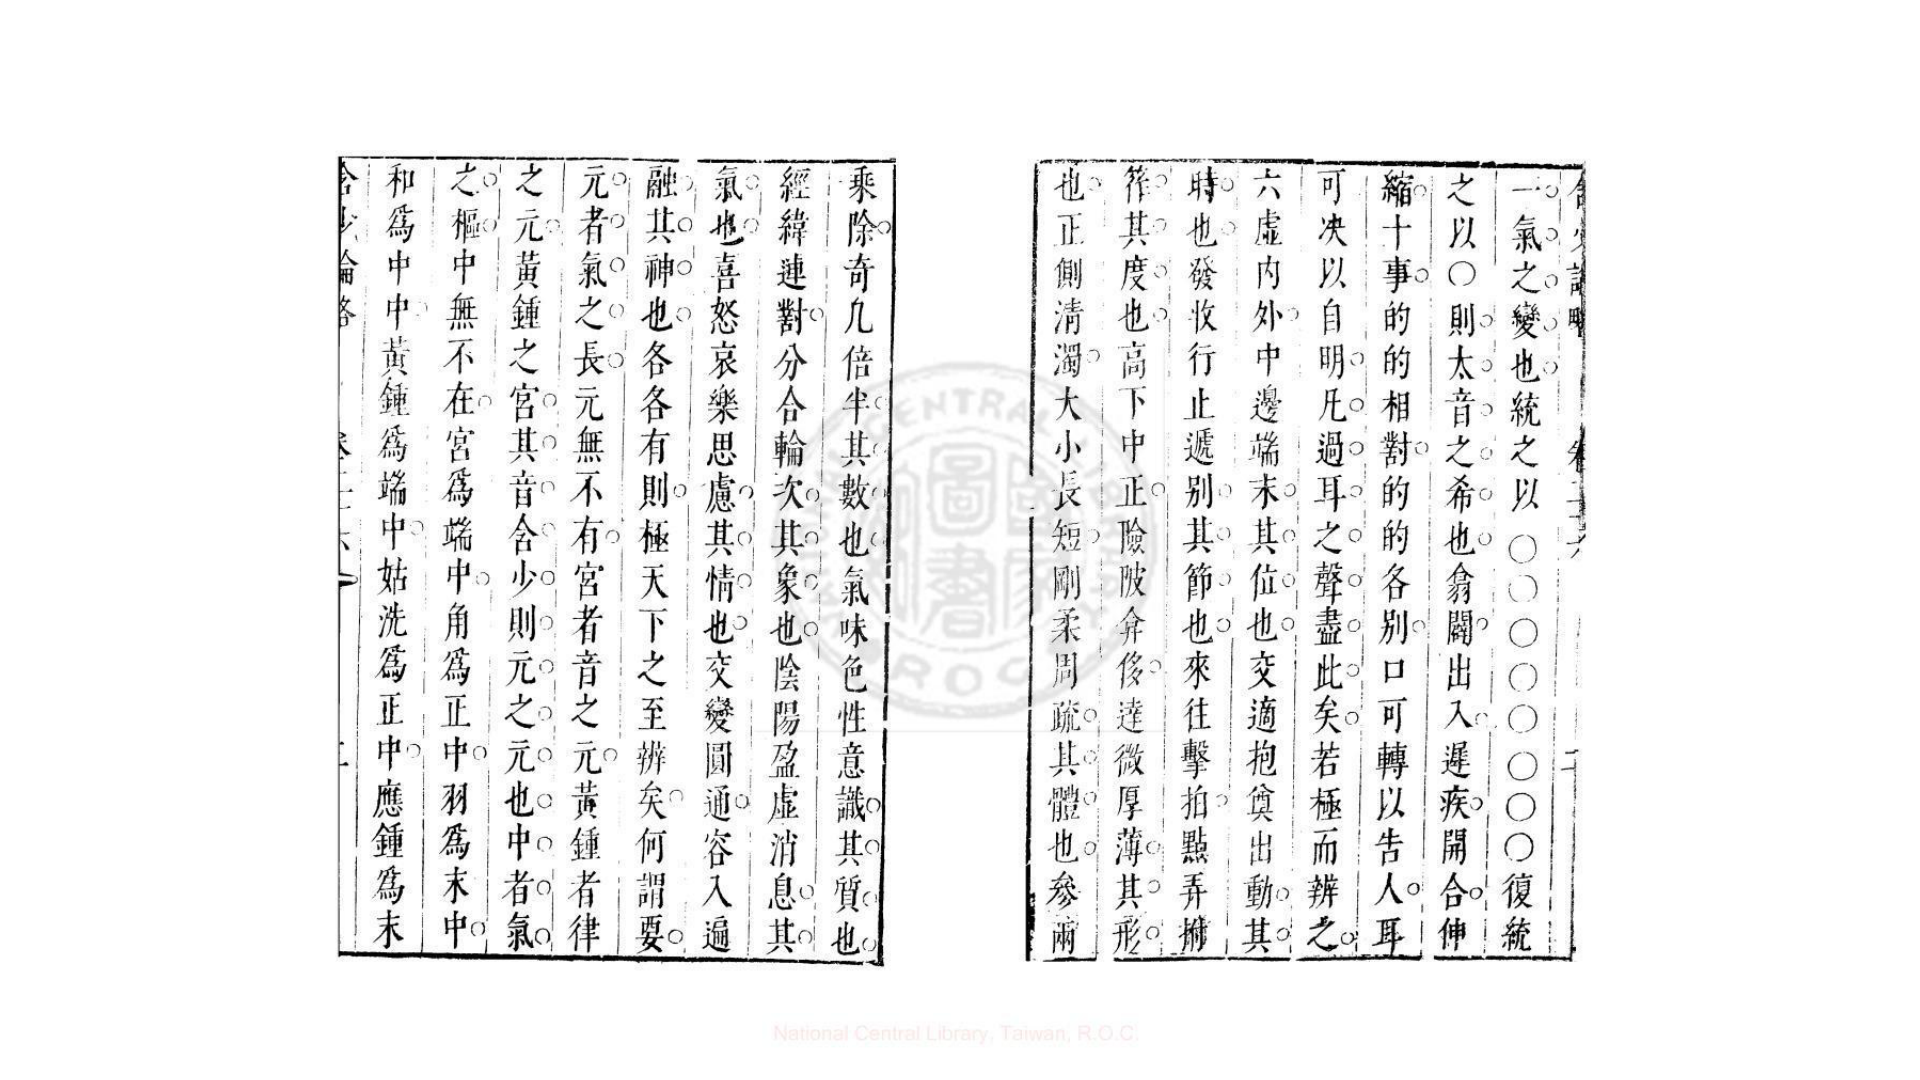 一氣之變也統之以〇〇〇〇〇〇〇〇復統
之以〇則太音之希也翕闢出入遲疾開合伸
縮十事的的相對的的各别口可轉以告人耳
可决以自明凡過耳之聲盡此矣若極而辨之
六虛内外中邊端末其位也交適抱奠出動其
時也發收行止遞别其節也來往擊拍點弄擁
筰其度也高下中正險陂弇侈達微厚薄其形
也正側清濁大小長短剛柔周疏其體也參兩
乘除奇几倍半其數也氣味色性意識其質也
經緯連對分合輪次其象也陰陽盈虛消息其
氣也喜怒哀樂思慮其情也交變圓通容入遍
融其神也各各有則極天下之至辨矣何謂要
元者氣之長元無不有宮者音之元黃鍾者律
之元黃鍾之宮其音含少則元之元也中者氣
之樞中無不在宮爲端中角爲正中羽爲末中
和爲中中黃鍾爲端中姑洗爲正中應鍾爲末
National Central Library, Taiwan, R.O.C.